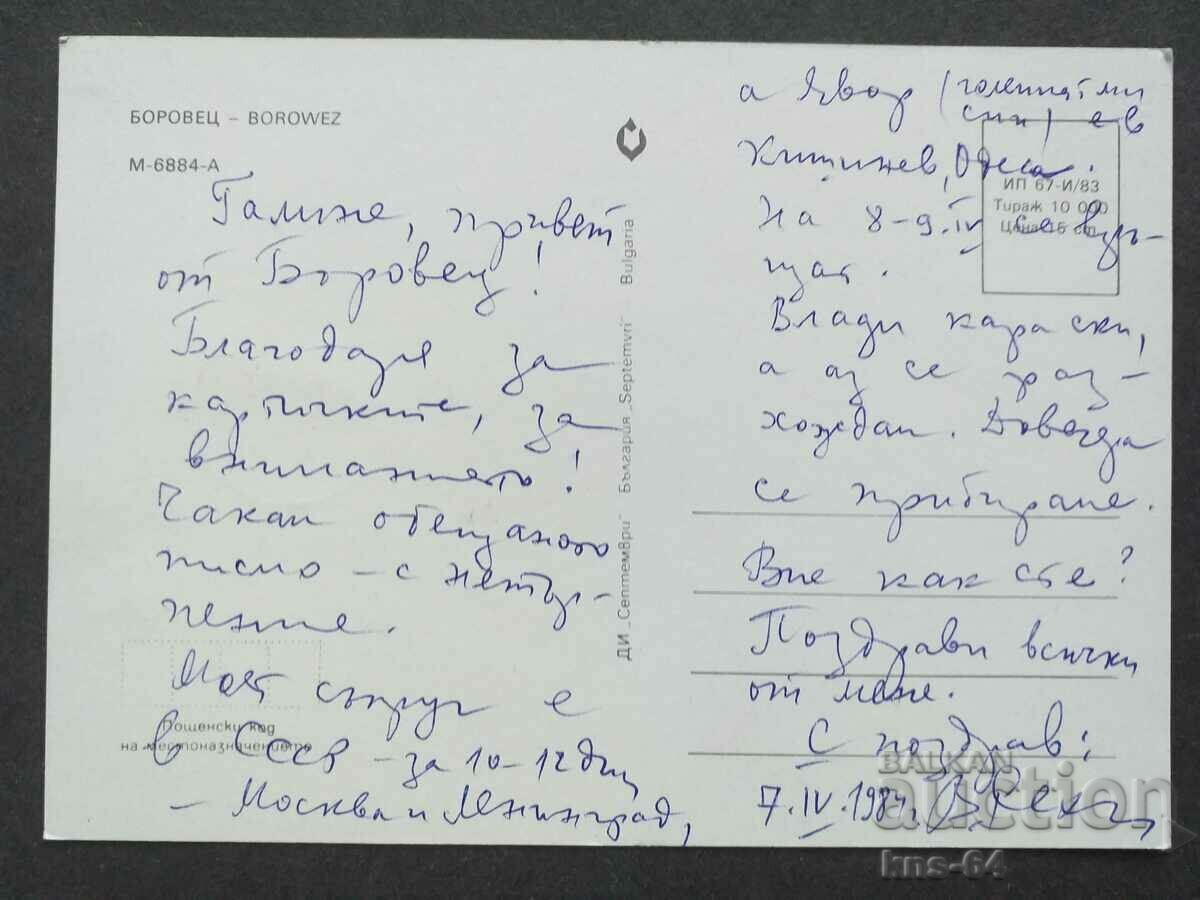 БОРОВЕЦ – BOROWEZ
М-6884-А
Галине, привет
от Боровец!
Благодаря за
картичките, за
вниманието!
Чакам обещаното
писмо – с нетър-
пение.
Моят съпруг е
в СССР – за 10-12 дни
– Москва и Ленинград,
Пощенски код
на местоназначението
ДИ „Септември" България „Septemvri" Bulgaria
а Явор (големият ми
син) е в
Кишинев, Одеса.
На 8-9.IV се връ-
щат.
Влади кара ски,
а аз се раз-
хождам. Довечера
се прибираме.
Вие как сте?
Поздрави всички
от мене.
С поздрав:
7.IV.1984г.
ИП 67-И/83
Тираж 10 000
Цена 15 ст.
BALKAN
auction
kns-64